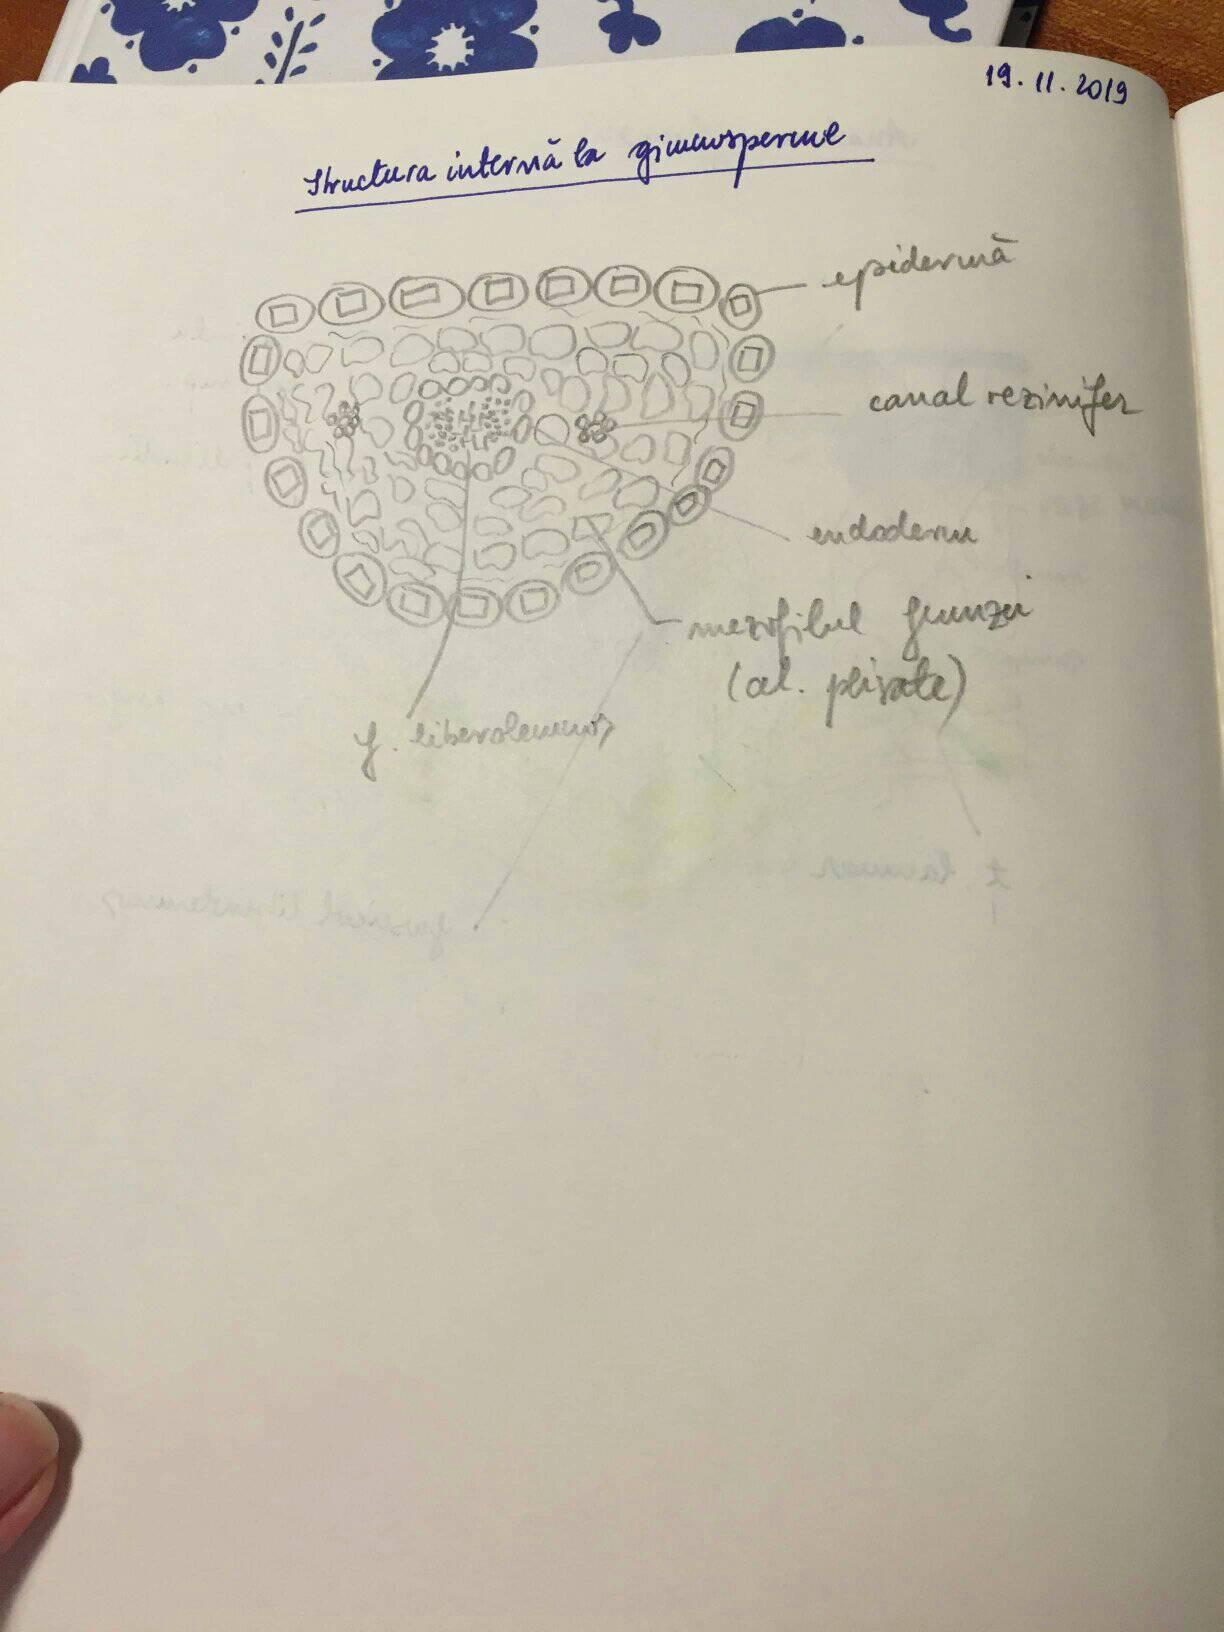 19.11.2019
Structura internă la gimnosperme
epidermă
canal rezinifer
endoderm
mezofilul frunzei
(cel. plisate)
f. liberolemnos